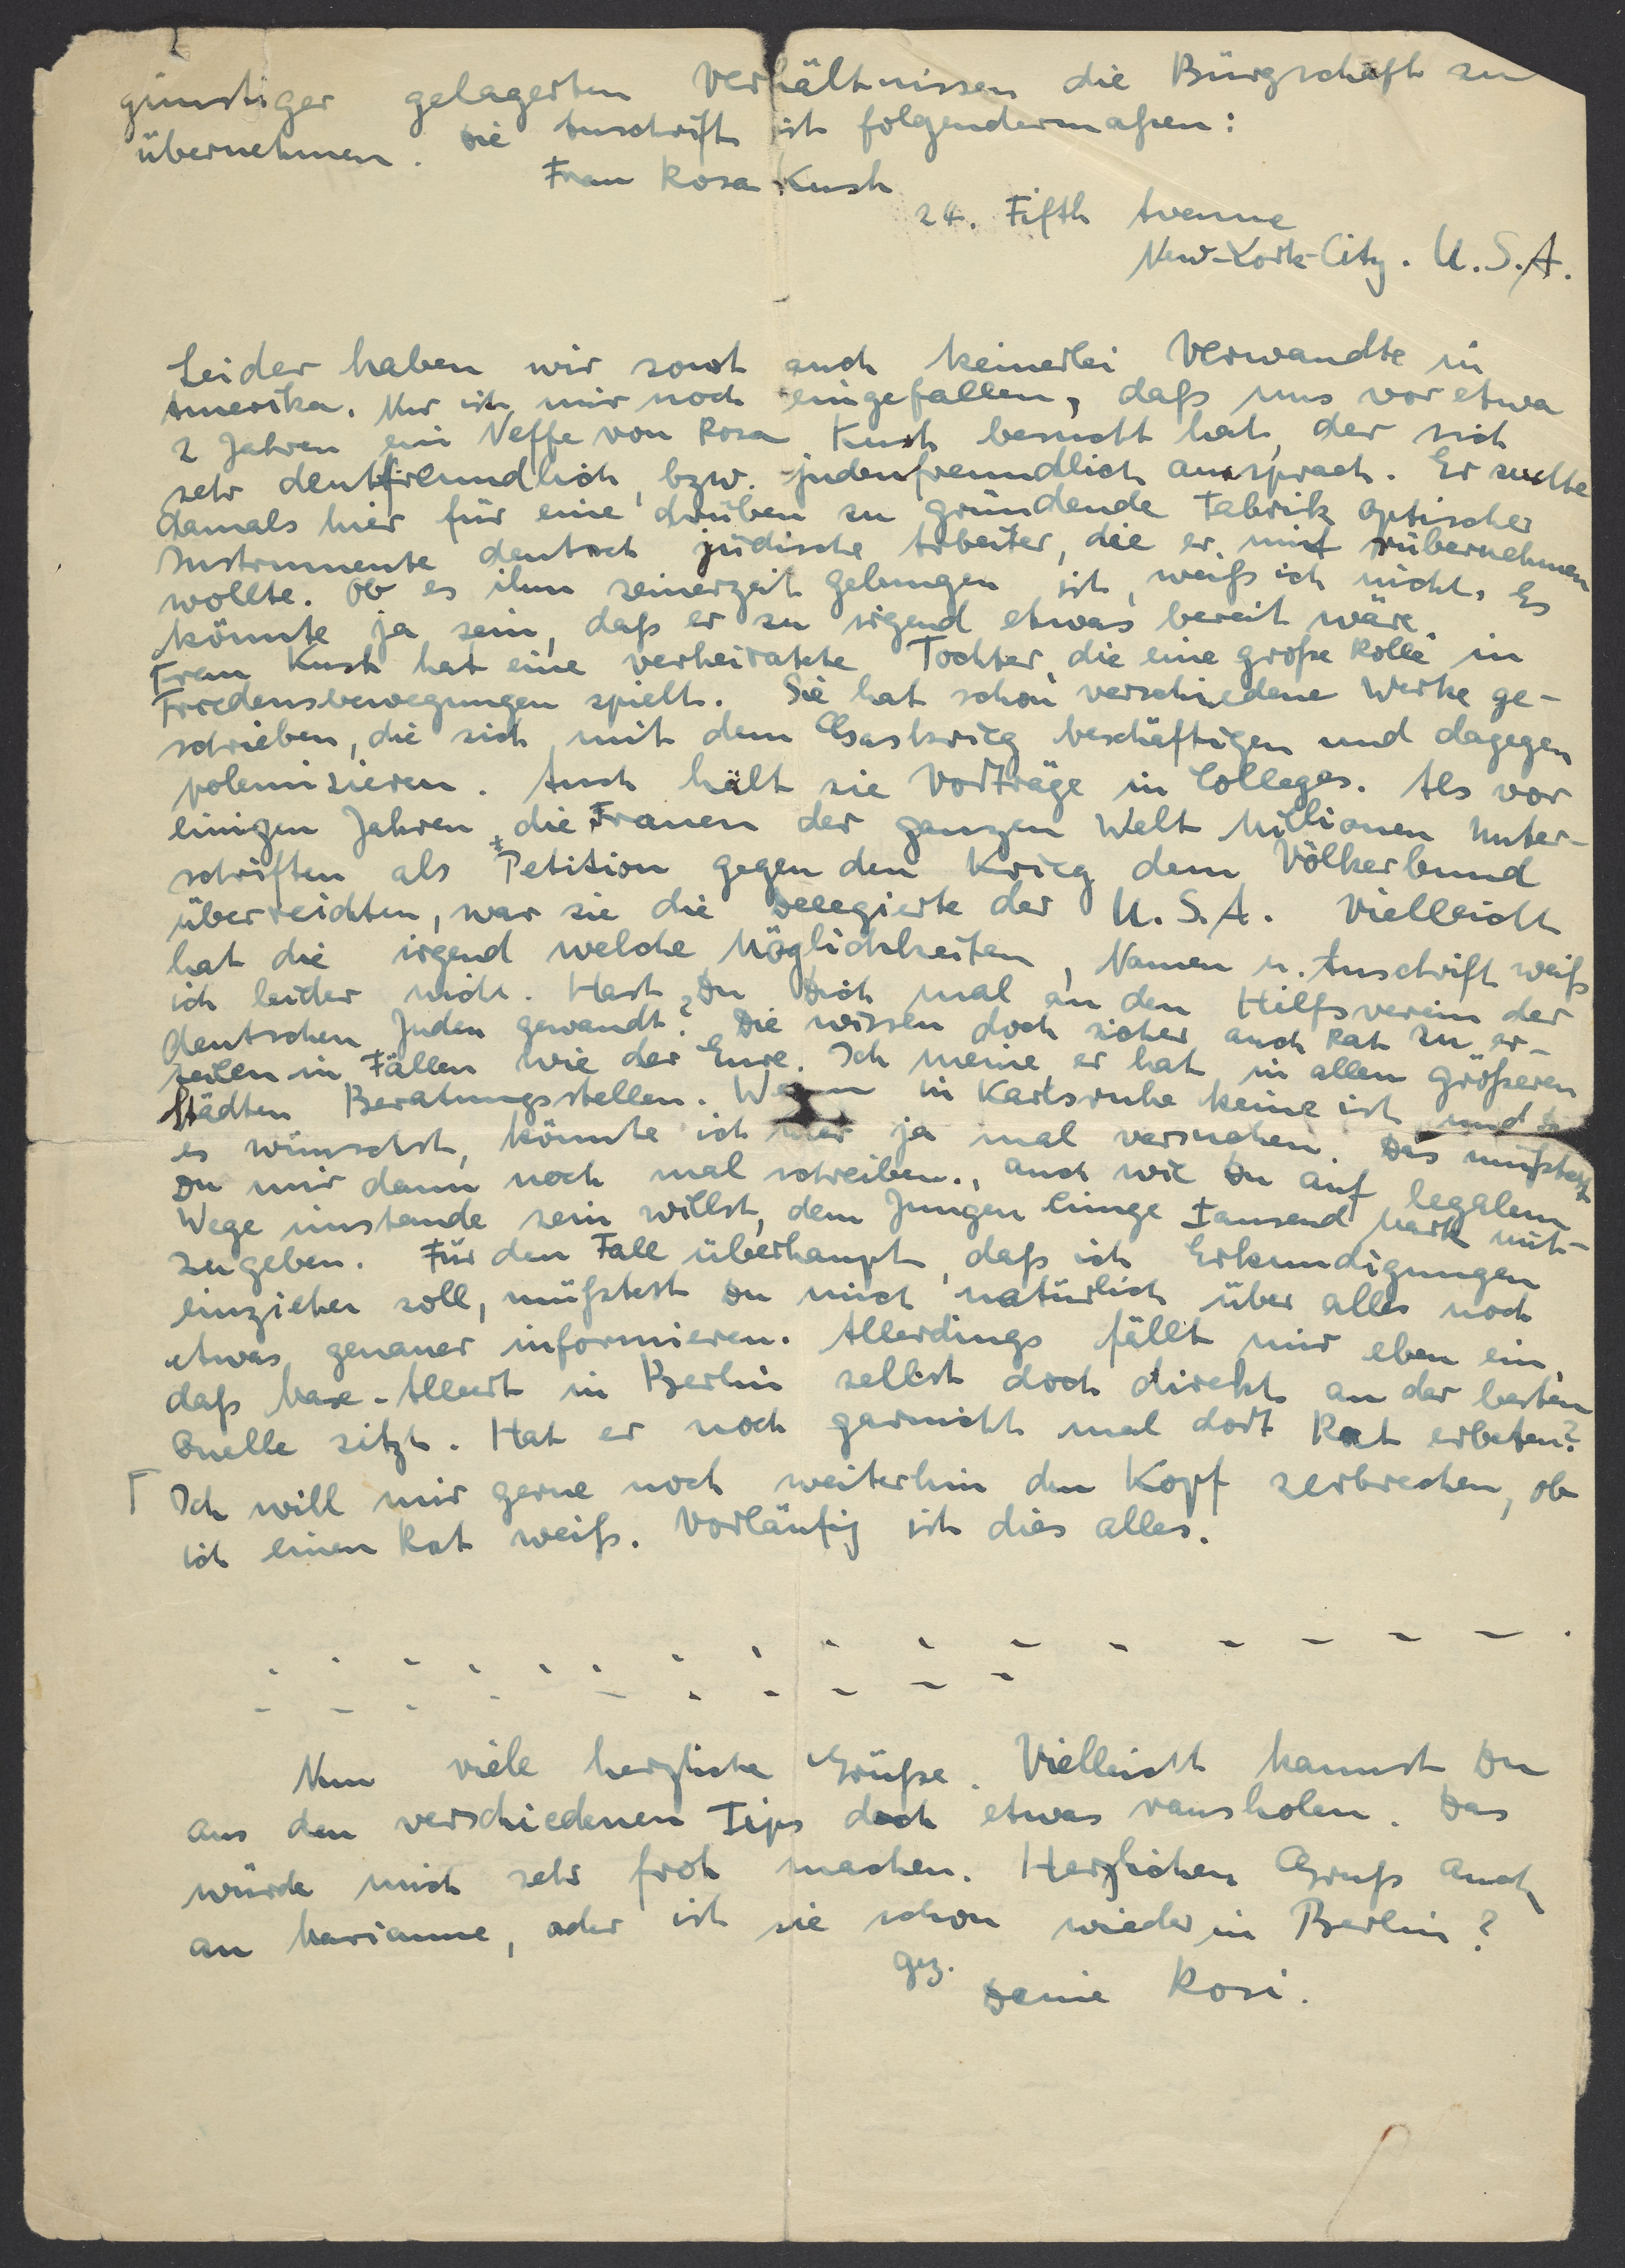 günstiger gelagerten Verhältnissen die Bürgschaft zu
übernehmen. Die Anschrift ist folgendermaßen:
Frau Rosa Kush
24. Fifth Avenue
New-York-City. U.S.A.
Leider haben wir sonst auch keinerlei Verwandte in
Amerika. Nur ist mir noch eingefallen, daß uns vor etwa
2 Jahren ein Neffe von Rosa Kush besucht hat, der sich
sehr deutfreundlich, bzw. judenfreundlich aussprach. Er suchte
damals hier für eine drüben zu gründende Fabrik optischer
Instrumente deutsch jüdische Arbeiter, die er mit rübernehmen
wollte. Ob es ihm seinerzeit gelungen ist, weiß ich nicht. Es
könnte ja sein, daß er zu irgend etwas bereit wäre.
Frau Kush hat eine verheiratete Tochter, die eine große Rolle in
Friedensbewegungen spielt. Sie hat schon verschiedene Werke ge-
schrieben, die sich mit dem Gaskrieg beschäftigen und dagegen
polemisieren. Auch hält sie Vorträge in Colleges. Als vor
einigen Jahren die Frauen der ganzen Welt Millionen Unter-
schriften als Petition gegen den Krieg dem Völkerbund
überreichten, war sie die Delegierte der U.S.A. Vielleicht
hat die irgend welche Möglichkeiten, Namen u. Anschrift weiß
ich leider nicht. Hast Du Dich mal an den Hilfsverein der
deutschen Juden gewandt? Die wissen doch sicher auch Rat zu er-
teilen in Fällen wie der Eure. Ich meine, er hat in allen größeren
Städten Beratungsstellen. Wenn in Karlsruhe keine ist und Du
es wünschst, könnte ich hier ja mal versuchen. Das müßtest
Du mir dann noch mal schreiben., auch wie Du auf legalem
Wege imstande sein willst, dem Jungen einige tausend Mark mit-
zugeben. Für den Fall überhaupt, daß ich Erkundigungen
einziehen soll, müßtest Du mich natürlich über alles noch
etwas genauer informieren. Allerdings fällt mir eben ein,
daß Max-Albert in Berlin selbst doch direkt an der besten
Quelle sitzt. Hat er noch garnicht mal dort Rat erbeten?
Ich will mir gerne noch weiterhin den Kopf zerbrechen, ob
ich einen Rat weiß. Vorläufig ist dies alles.
Nun viele herzliche Grüße. Vielleicht kannst Du
aus den verschiedenen Tips doch etwas rausholen. Das
würde mich sehr froh machen. Herzlichen Gruß auch
an Marianne, oder ist sie schon wieder in Berlin?
gez.
Deine Rosi.